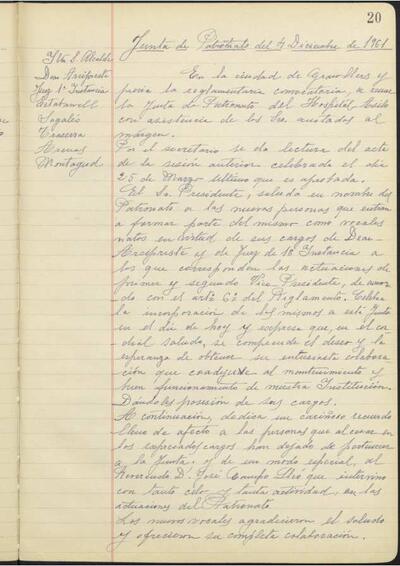 20
Junta de Patronato del 4 Diciembre de 1961
Ilt. S. Alcalde
Don Arcipreste
Juez 1ª Instancia
Estabanell
Sagalés
Arenas
Montagud
En la ciudad de Granollers y
previa la reglamentaria convocatoria, se reune
la Junta de Patronato del Hospital Asilo
con asistencia de los Sres anotados al
márgen.
Por el secretario se da lectura del acta
de la sesión anterior celebrada el día
25 de Marzo último que es aprobada.
El Sr. Presidente, saluda en nombre del
Patronato a las nuevas personas que entran
a formar parte del mismo como vocales
natos en virtud de sus cargos de Dean-
Arcipreste y de Juez de 1ª Instancia a
los que corresponden las actuaciones de
primer y segundo Vice-Presidente, de acuer
do con el artº 6º del Reglamento. Celebra
la incorporación de los mismos a esta Junta
en el día de hoy y expresa que, en el cor
dial saludo, se comprende el deseo y la
esperanza de obtener su entusiasta colabora
ción que coadyuve al mantenimiento y
buen funcionamiento de nuestra Institución.
Dándoles posesión de sus cargos.
A continuación, dedica un cariñoso recuerdo
lleno de afecto a las personas que al cesar en
los expresados cargos han dejado de pertenecer
a la Junta, y de un modo especial, al
Reverendo D. José Camps que intervino
con tanto celo y tanta actividad, en las
actuaciones del Patronato.
Los nuevos vocales agradecieron el saludo
y ofrecieron su completa colaboración.